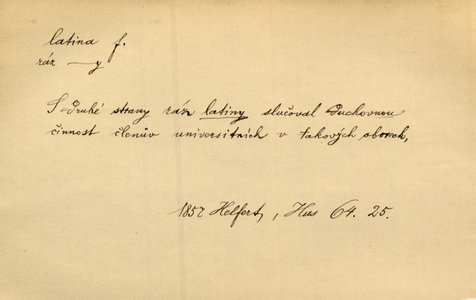 latina f.
ráz —y
S Druhé strany ráz latiny slučoval Duchovnou
činnost členův universitních v takových oborech,
1857 Helfert, Hus 64. 25.